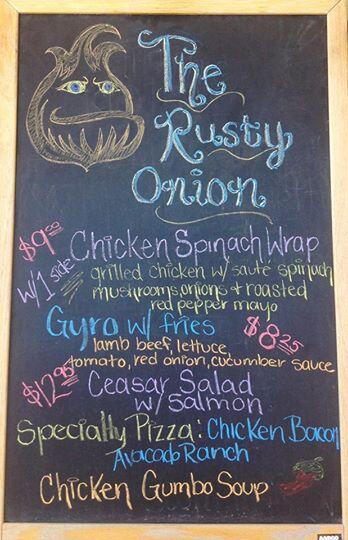 The
Rusty
Onion
$9.00 Chicken Spinach Wrap
w/1 side
grilled chicken w/ sauté spinach
mushrooms onions & roasted
red pepper mayo
Gyro w/ fries $8.25
lamb beef, lettuce,
tomato, red onion, cucumber sauce
$12.95 Ceasar Salad
w/ Salmon
Specialty Pizza: Chicken Bacon
Avacado Ranch
Chicken Gumbo Soup